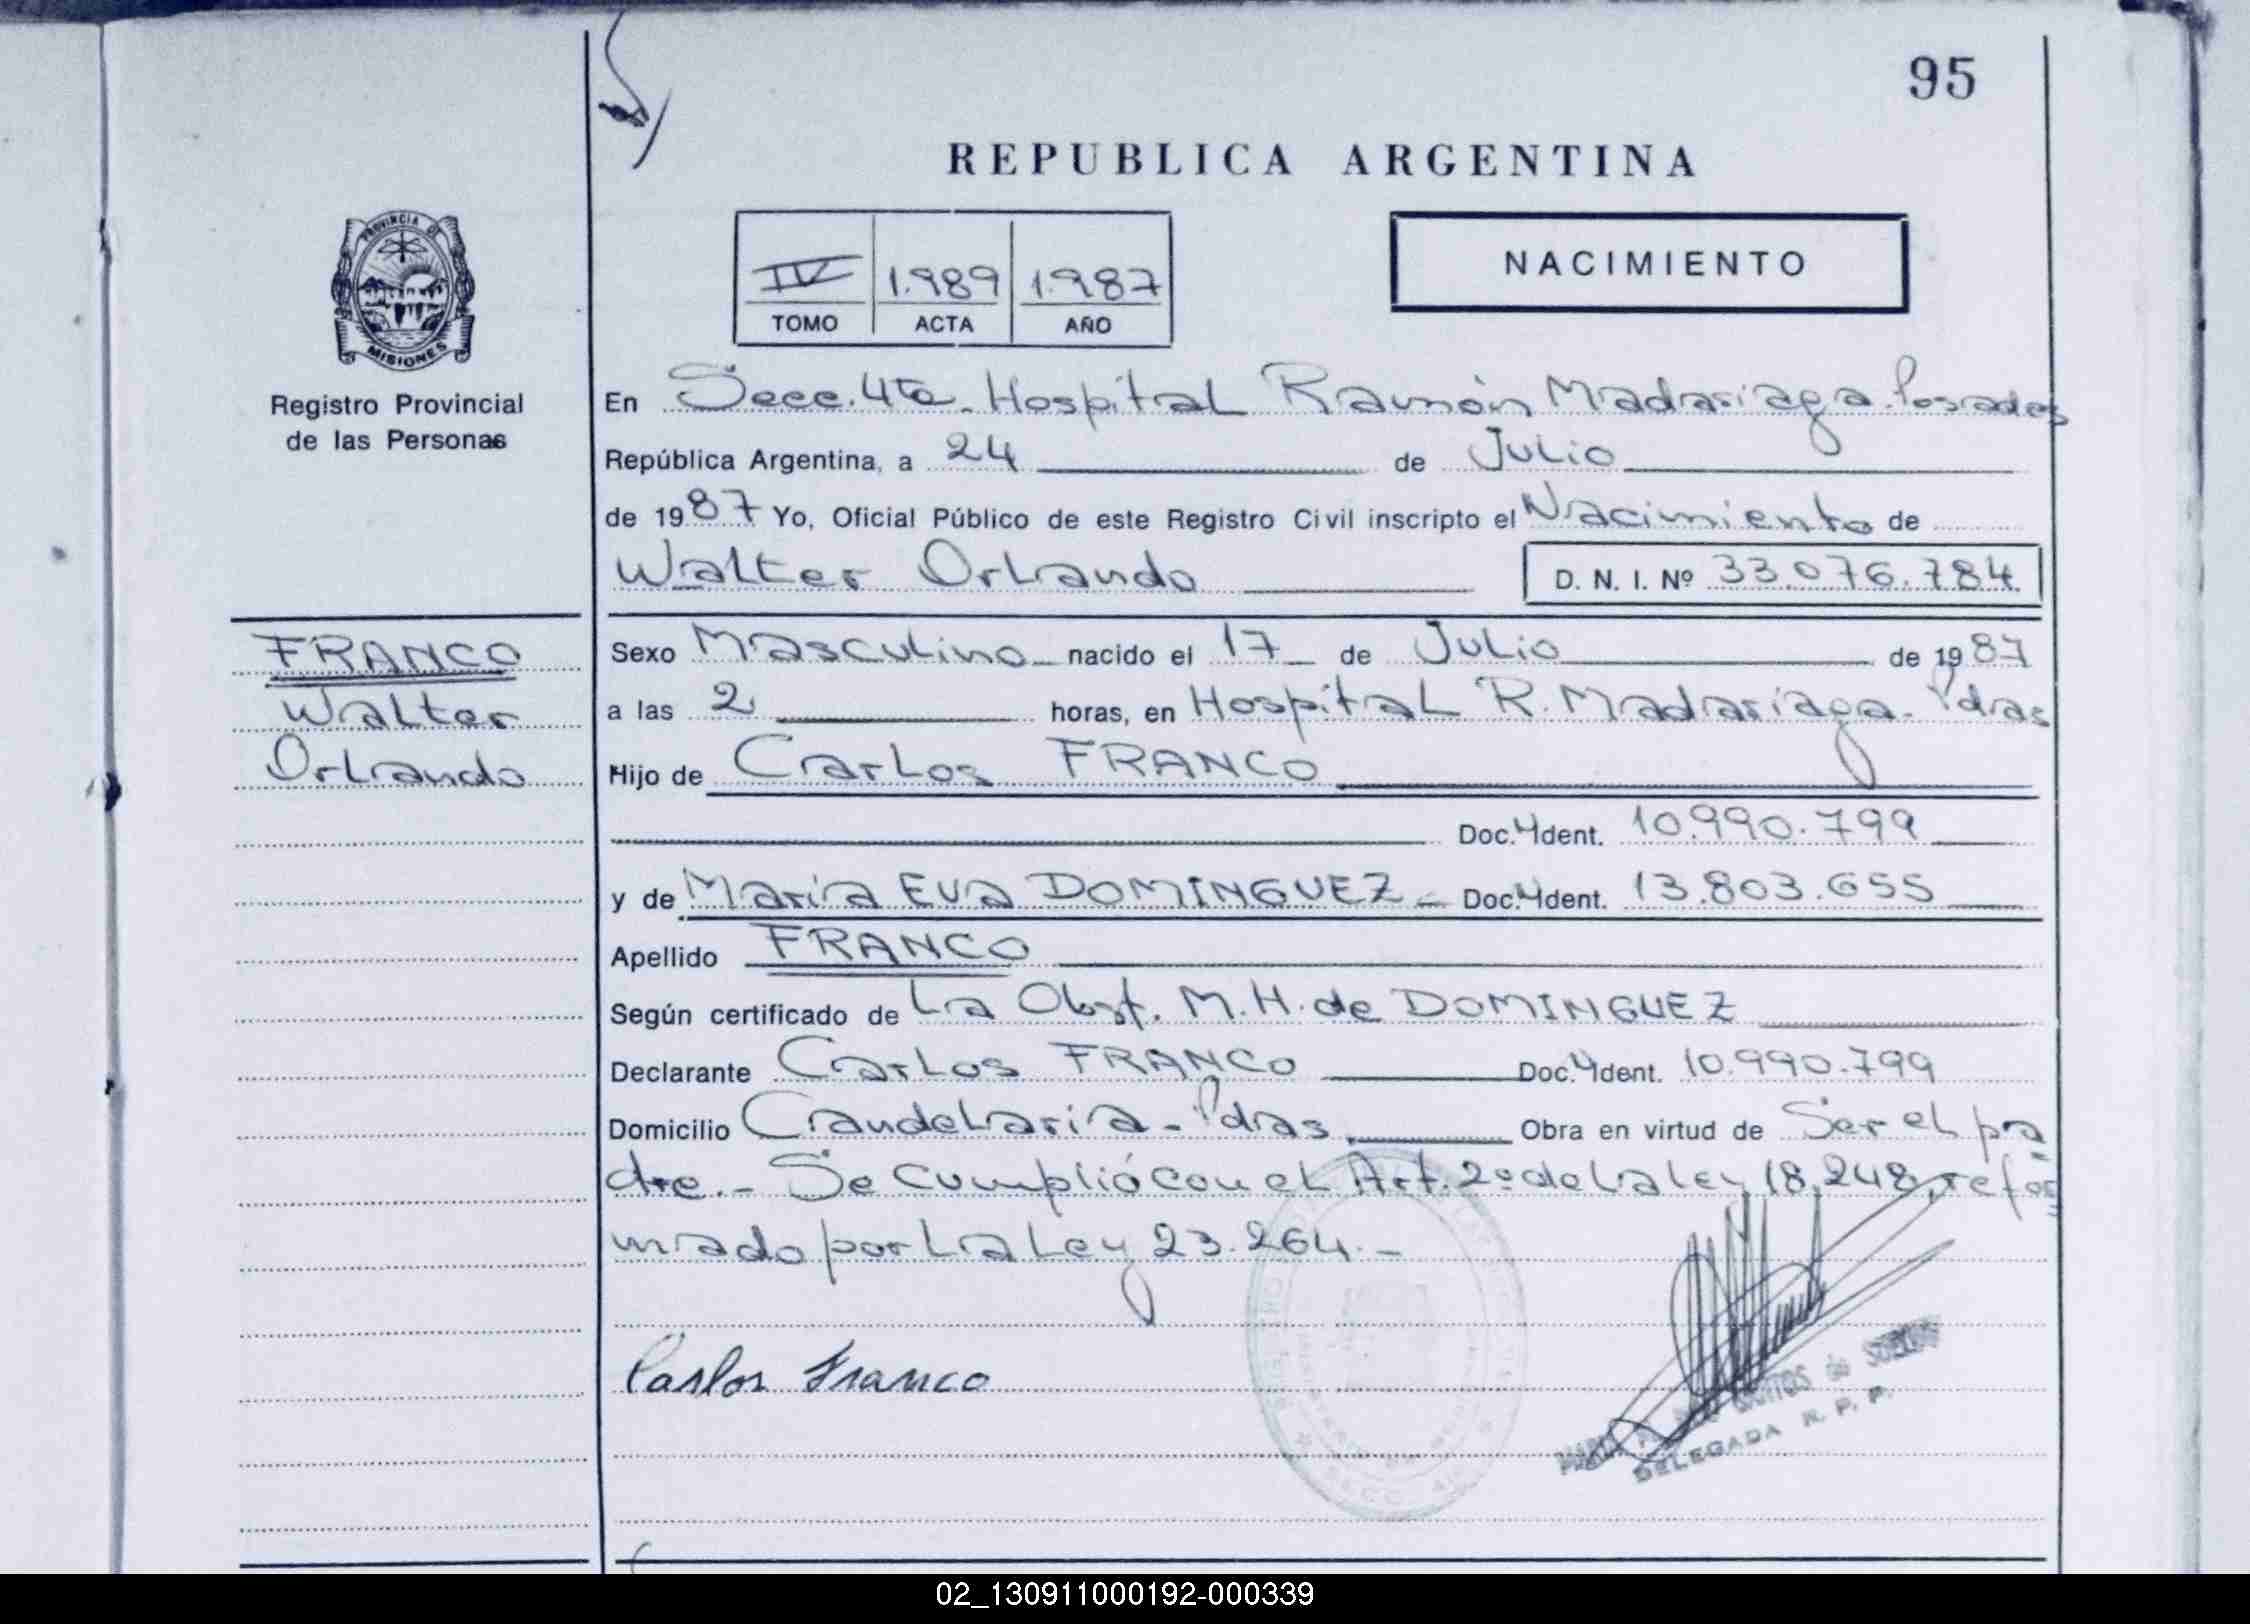 95
REPUBLICA ARGENTINA
PROVINCIA DE
MISIONES
Registro Provincial
de las Personas
IV 1.989 1.987
TOMO ACTA AÑO
NACIMIENTO
En Secc. 4ta. Hospital Ramón Madariaga. Posadas
República Argentina, a 24 de Julio
de 1987 Yo, Oficial Público de este Registro Civil inscripto el Nacimiento de
Walter Orlando D. N. I. Nº 33.076.784
FRANCO
Walter
Orlando
Sexo Masculino nacido el 17 de Julio de 1987
a las 2 horas, en Hospital R. Madariaga. Pdas
Hijo de Carlos FRANCO
Doc. Ident. 10.990.799
y de María Eva DOMINGUEZ - Doc. Ident. 13.803.655
Apellido FRANCO
Según certificado de La Obst. M.H. de DOMINGUEZ
Declarante Carlos FRANCO Doc. Ident. 10.990.799
Domicilio Candelaria - Pdas. Obra en virtud de Ser el pa
dre.- Se cumplió con el Art. 2º de la Ley 18.248, refor
mado por la Ley 23.264.-
Carlos Franco
SANTOS de
DELEGADA R. P. P.
02_130911000192-000339